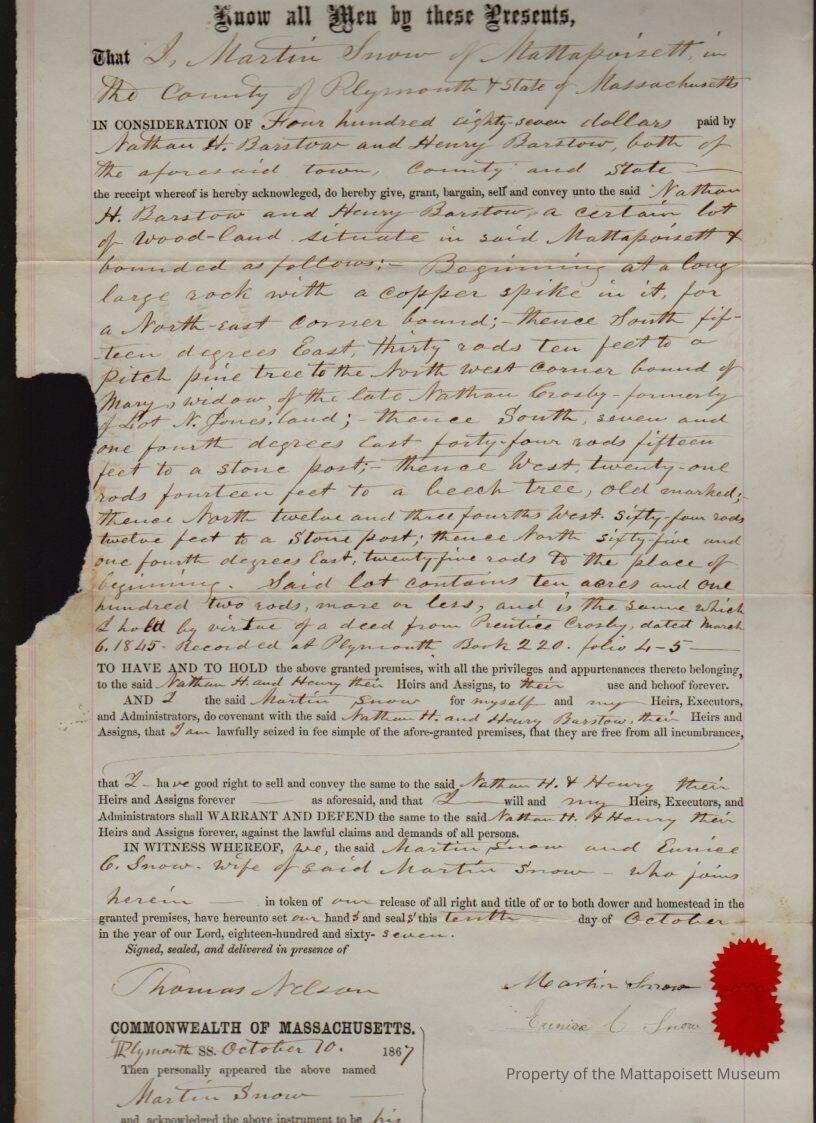 Know all Men by these Presents,
That I, Martin Snow of Mattapoisett, in
the County of Plymouth & State of Massachusetts
IN CONSIDERATION OF Four hundred eighty-seven dollars paid by
Nathan H. Barstow and Henry Barstow, both of
the aforesaid town, County and State
the receipt whereof is hereby acknowleged, do hereby give, grant, bargain, self and convey unto the said Nathan
H. Barstow and Henry Barstow, a certain lot
of Wood-land situate in said Mattapoisett &
bounded as follows:- Beginning at a long
large rock with a copper spike in it, for
a North-east corner bound; thence South fif-
teen degrees East, thirty rods ten feet to a
Pitch pine tree to the North West corner bound of
Mary, widow of the late Nathan Crosby - formerly
of Lot N. Jones' land; - thence South, seven and
one fourth degrees East forty-four rods fifteen
feet to a stone post; - thence West, twenty-one
rods fourteen feet to a beech tree, old marked;
thence North twelve and three fourths West. Sixty-four rods
twelve feet to a Stone post; thence North sixty five and
one fourth degrees East, twenty five rods to the place of
beginning. Said lot contains ten acres and one
hundred two rods, more or less, and is the same which
I hold by virtue of a deed from Prentice Crosby, dated March
6. 1845 - Recorded at Plymouth Book 220. folio 4-5
TO HAVE AND TO HOLD the above granted premises, with all the privileges and appurtenances thereto belonging,
to the said Nathan H. and Henry their Heirs and Assigns, to their use and behoof forever.
AND I the said Martin Snow for myself and my Heirs, Executors,
and Administrators, do covenant with the said Nathan H. and Henry Barstow, their Heirs and
Assigns, that I am lawfully seized in fee simple of the afore-granted premises, that they are free from all incumbrances,
that I have good right to sell and convey the same to the said Nathan H. & Henry their
Heirs and Assigns forever as aforesaid, and that I will and my Heirs, Executors, and
Administrators shall WARRANT AND DEFEND the same to the said Nathan H. & Henry their
Heirs and Assigns forever, against the lawful claims and demands of all persons.
IN WITNESS WHEREOF, we, the said Martin Snow and Eunice
C. Snow - wife of said Martin Snow - who joins
herein in token of our release of all right and title of or to both dower and homestead in the
granted premises, have hereunto set our hands and seals this tenth day of October
in the year of our Lord, eighteen-hundred and sixty- seven.
Signed, sealed, and delivered in presence of
Thomas Nelson
Martin Snow
Eunice C. Snow
COMMONWEALTH OF MASSACHUSETTS.
Plymouth SS. October 10. 1867
Then personally appeared the above named
Martin Snow
and acknowledged the above instrument to be his
Property of the Mattapoisett Museum